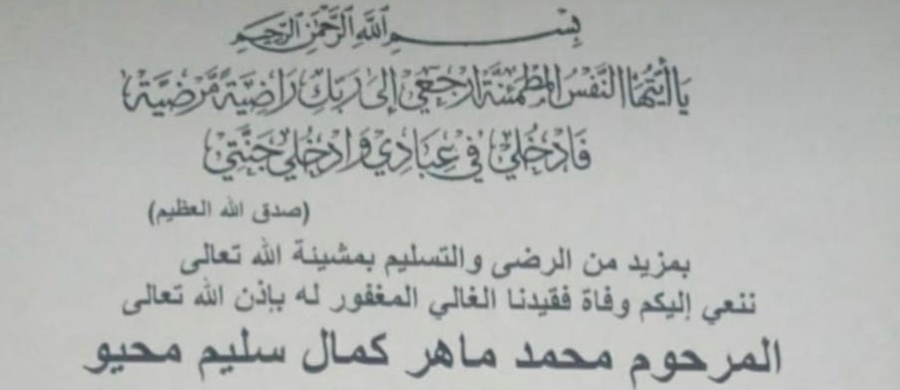 بِسْمِ اللَّهِ الرَّحْمَٰنِ الرَّحِيمِ
يَا أَيَّتُهَا النَّفْسُ الْمُطْمَئِنَّةُ ارْجِعِي إِلَى رَبِّكِ رَاضِيَةً مَّرْضِيَّةً
فَادْخُلِي فِي عِبَادِي وَادْخُلِي جَنَّتِي
(صدق الله العظيم)
بمزيد من الرضى والتسليم بمشيئة الله تعالى
ننعي إليكم وفاة فقيدنا الغالي المغفور له بإذن الله تعالى
المرحوم محمد ماهر كمال سليم محيو